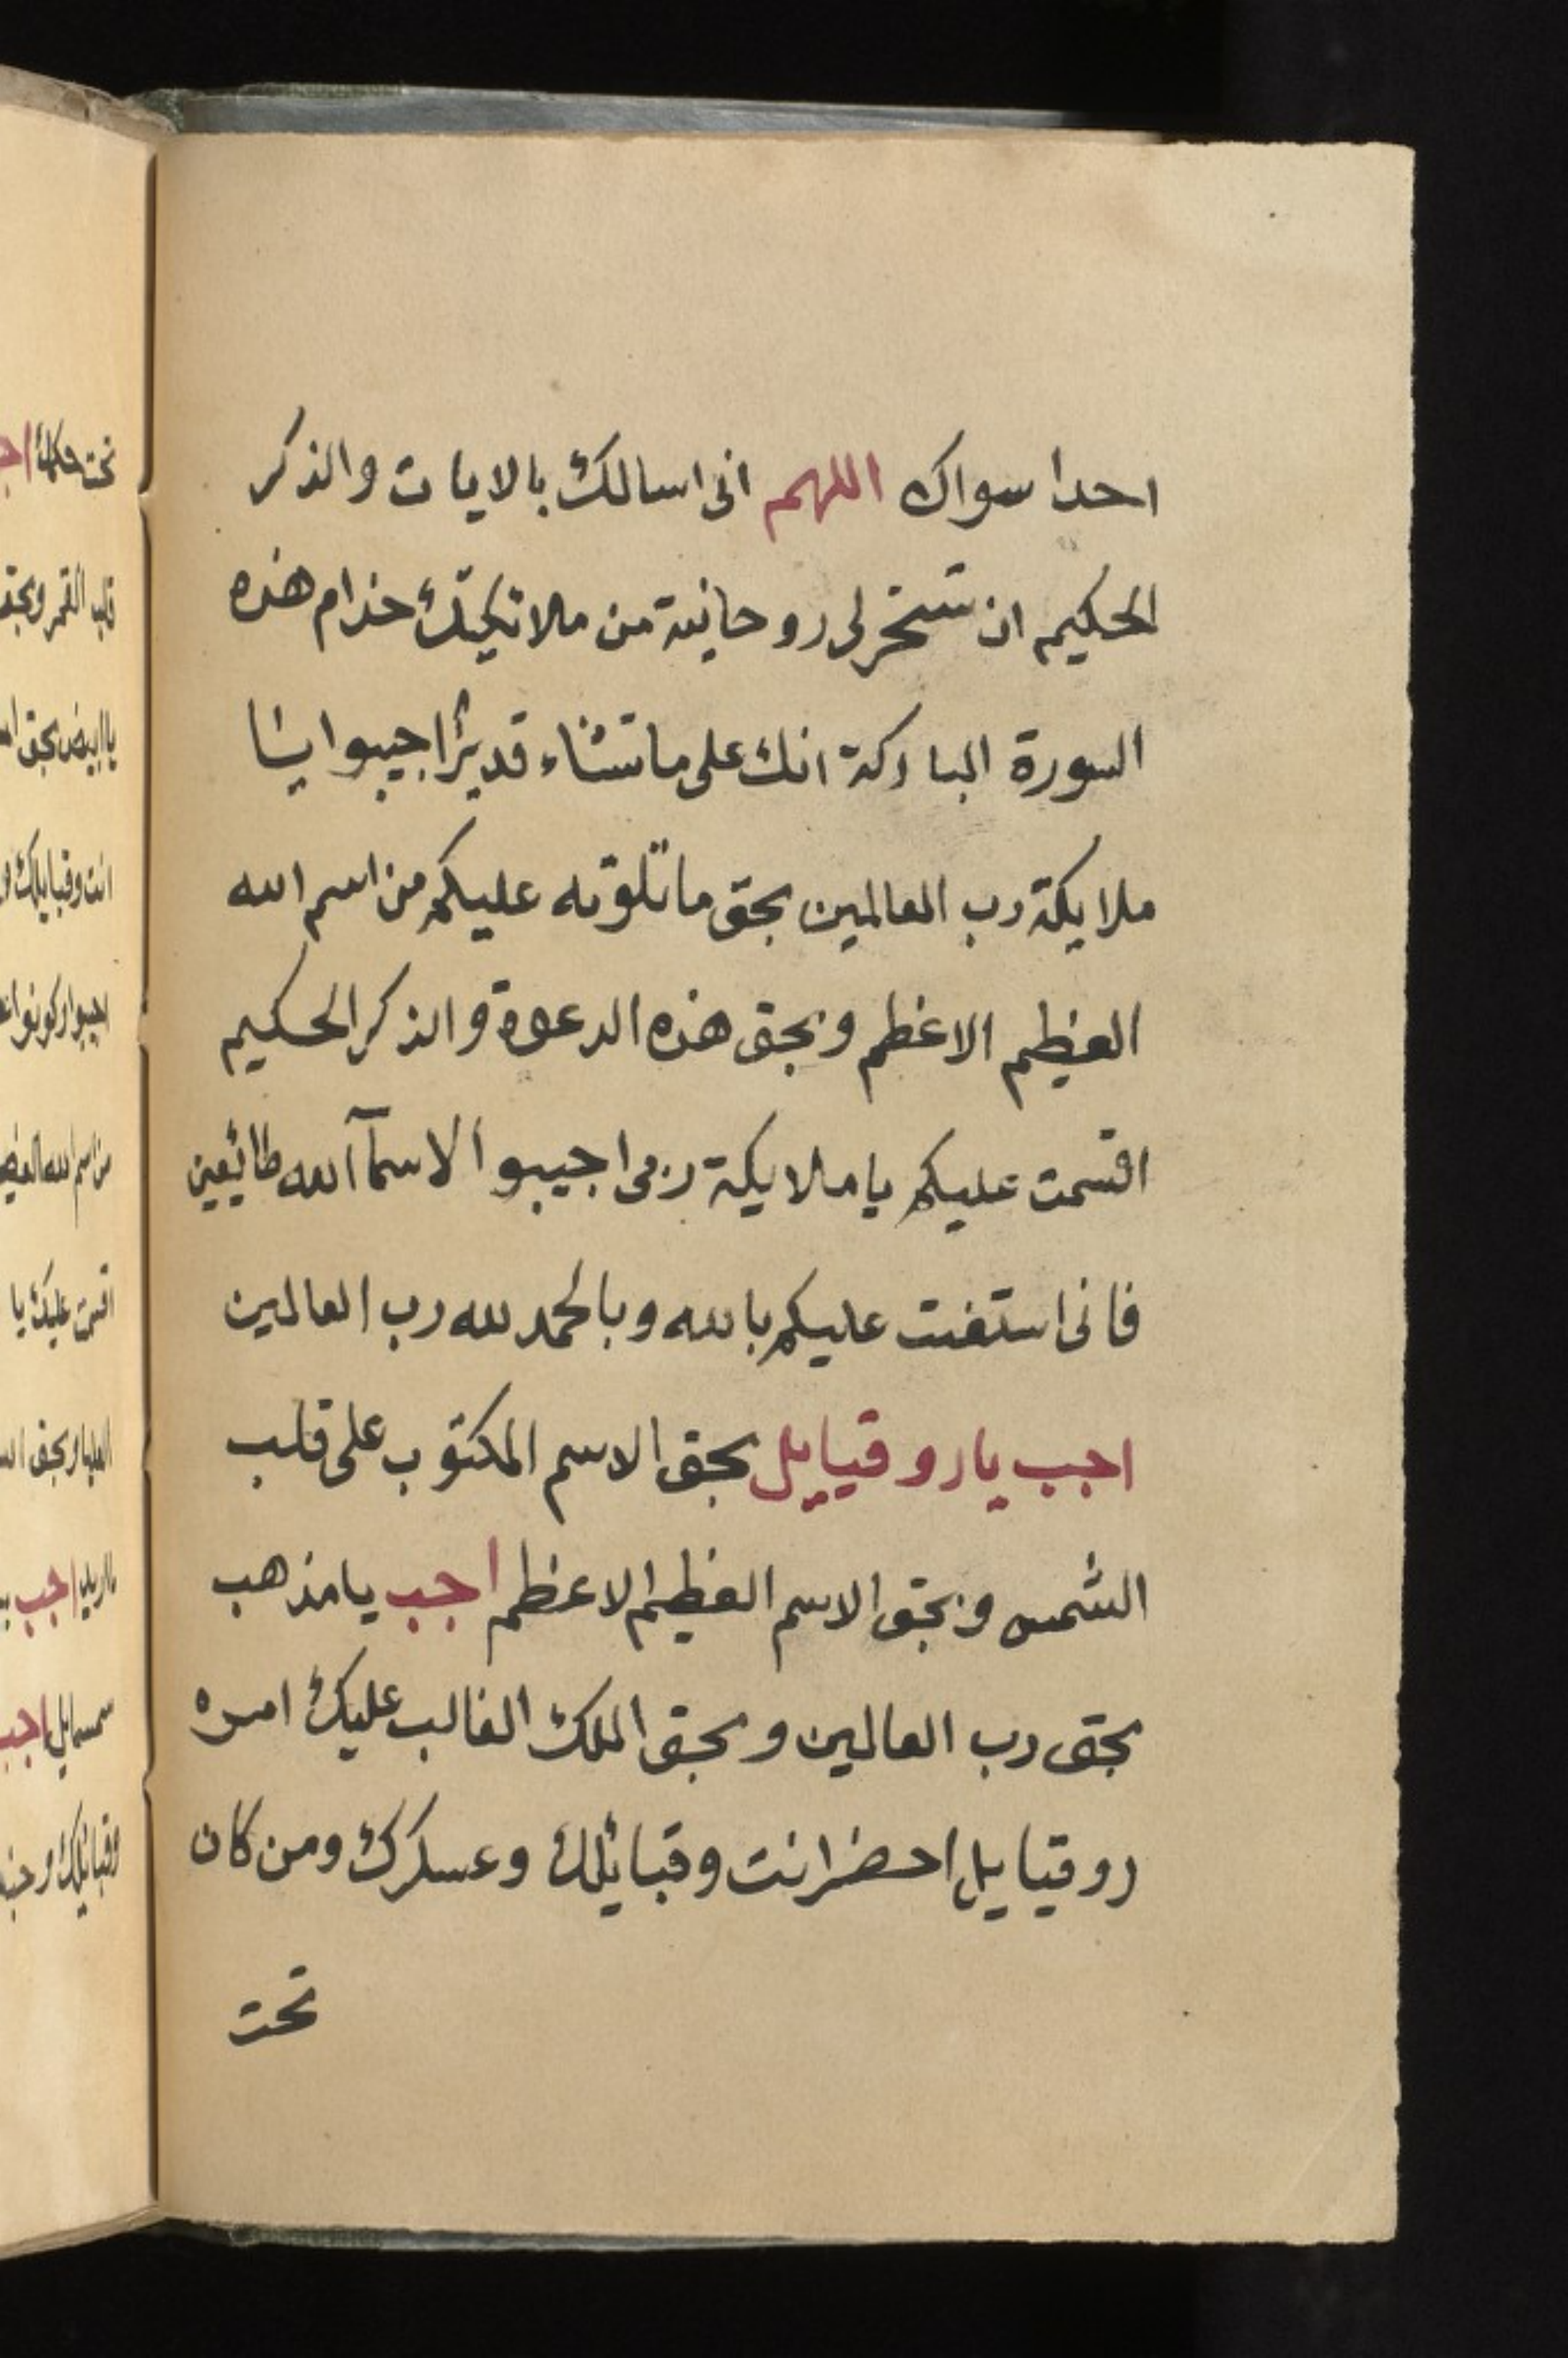 احدا سواك اللهم انى اسالك بالايات والذكر
الحكيم ان تسخر لى روحانية من ملائكتك خدام هذه
السورة المباركة انك على ما تشاء قدير اجيبوا يا
ملايكة رب العالمين بحق ما تلوته عليكم من اسم الله
العظيم الاعظم وبحق هذه الدعوة والذكر الحكيم
اقسمت عليكم يا ملايكة ربى اجيبوا لاسمآ الله طائيعين
فانى عليكم بالله وبالحمد لله رب العالمين
اجب يا روقيايل بحق الاسم المكتوب على قلب
الشمس وبحق الاسم العظيم الاعظم اجب يا مذهب
بحق رب العالمين وبحق الملك الغالب عليك امره
روقيايل احضر انت وقبائلك وعسكرك ومن كان
تحت